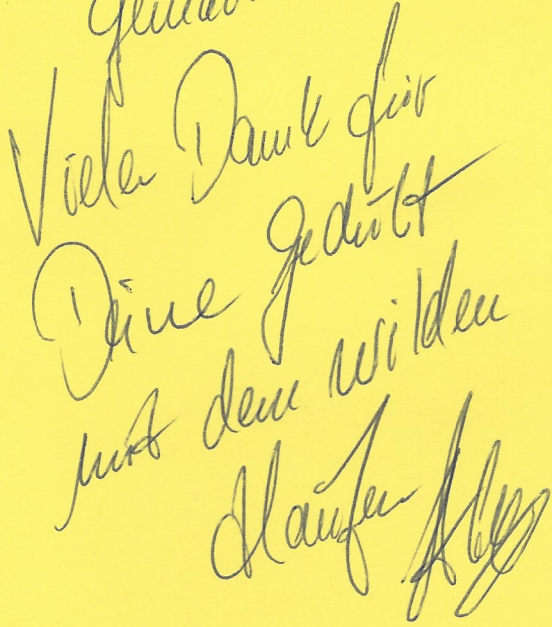 Vielen Dank für
Deine Gedult
mit dem wilden
Haufen